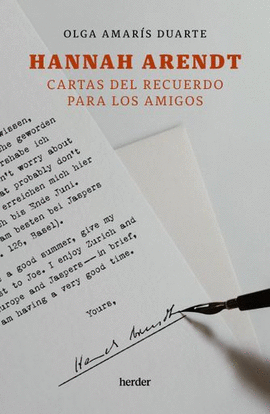 OLGA AMARÍS DUARTE
HANNAH ARENDT
CARTAS DEL RECUERDO
PARA LOS AMIGOS
wissen,
che geworden
rshabe ich
on't worry about
at probably don't
erreichen mich hier
h bis Ende Juni.
am besten bei Jaspers
. 126, Basel).
e a good summer, give my
st to Joe. I enjoy Zurich and
urope and Jaspers—in brief,
am having a very good time.
Yours,
Hannah Arendt
herder